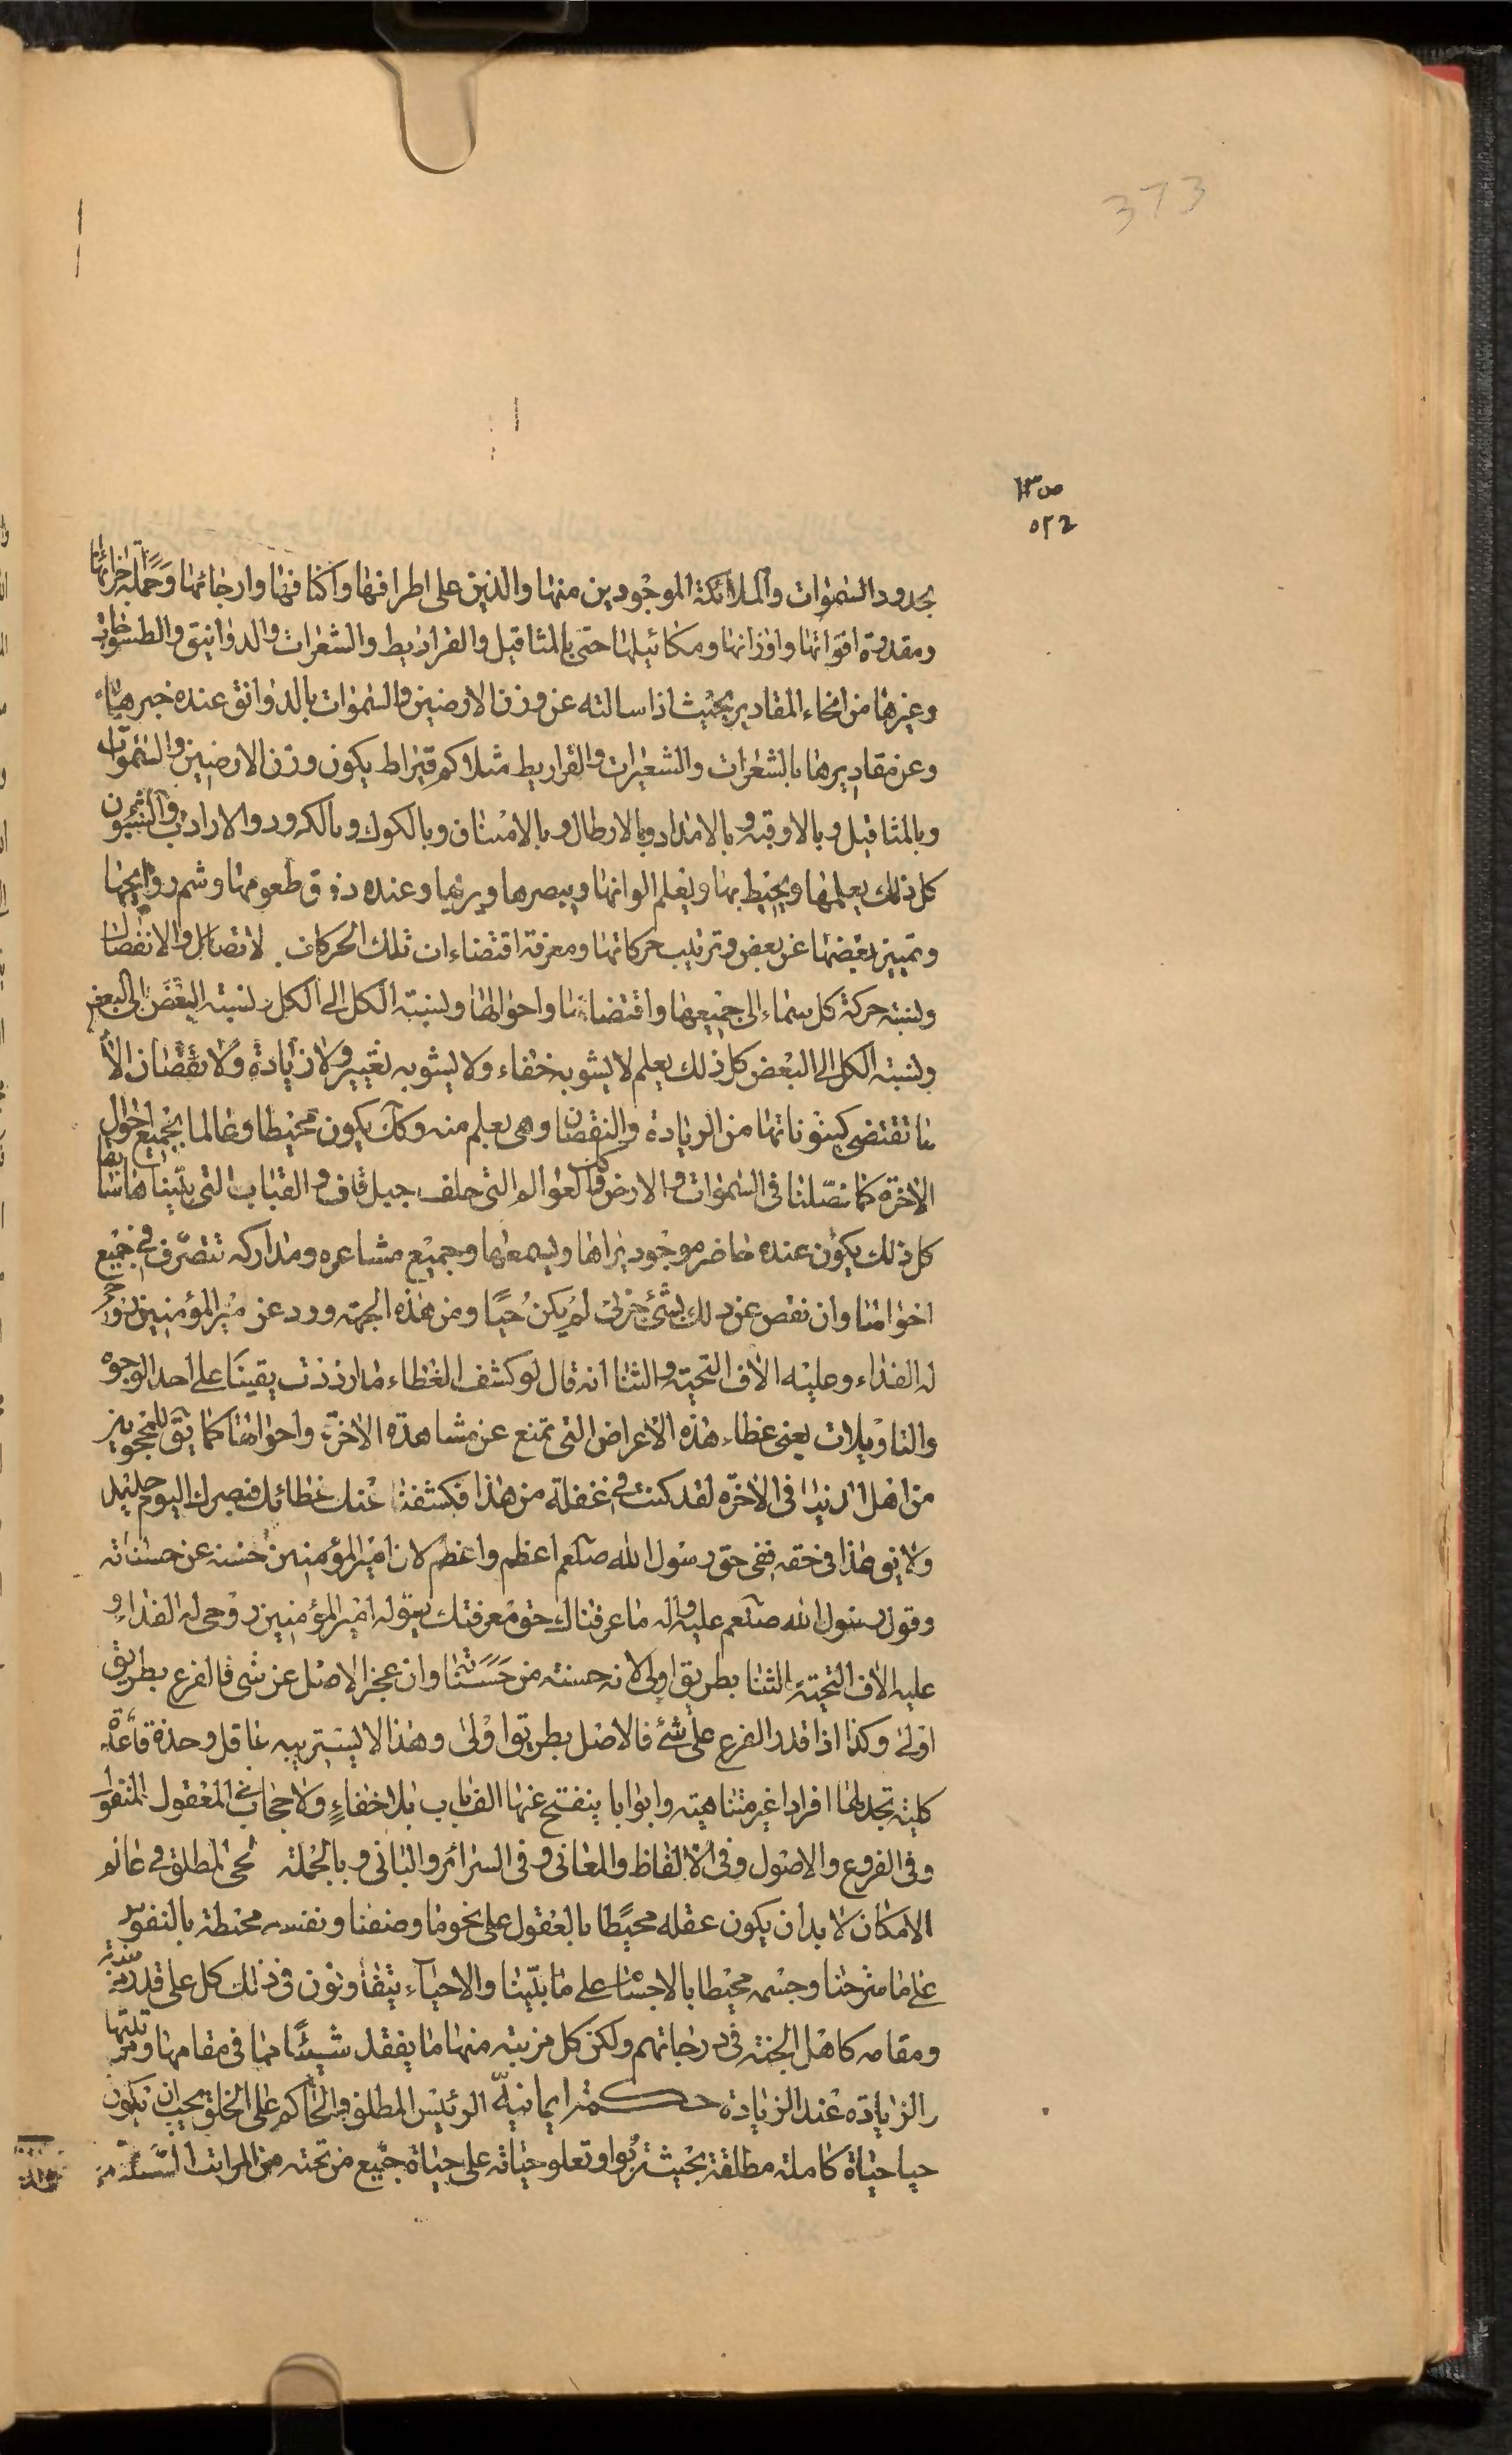 373
ص ١٣
٥٢٢
بحدود السموات والملائكة الموجودين منها والذين على اطرافها واكنافها وارجائها وحملة اجزائها
ومقدرة اقواتها واوزانها ومكائيلها حتى بالمثاقيل والقراريط والشعرات والدوانيق والطسوجات
وغيرها من انحاء المقادير بحيث اذا سالته عن وزن الارضين والسموات بالدوانق عنده خبرها
وعن مقاديرها بالشعرات والشعيرات والقراريط مثلا كم قيراط يكون وزن الارضين والسموات
وبالمثاقيل وبالاوقية وبالامداد وبالارطال وبالامنان وبالكوك وبالكرور والارادب
كل ذلك يعلمها ويحيط بها ويعلم الوانها ويبصرها ويريها وعنده ذوق طعومها وشم روايحها
وتميز بعضها عن بعض وترتيب حركاتها ومعرفة اقتضاءات تلك الحركات لاتصال والانفصال
ونسبة حركة كل سماء الى جميعها واقتضاءاتها واحوالها ونسبة الكل الى الكل ونسبة البعض الى البعض
ونسبة الكل الى البعض كل ذلك يعلم لا يشوبه خفاء ولا يشوبه تغيير ولا زيادة ولا نقصان الا
ما تقتضى كينوناتها من الزيادة والنقصان وهى بعلم منه وكك يكون محيطا وعالما بجميع احوال
الاخرة كما فصّلنا فى السموات والارض والعوالم التى خلف جبل قاف والقباب التى بيناها سابقا
كل ذلك يكون عنده حاضر موجود يراها ويسمعها وجميع مشاعره ومداركه تتصرّف فى جميع
احوالها وان نقص عن ذلك بشئ جزئى لم يكن حيّا ومن هذه الجهة ورد عن امير المؤمنين روحى
له الفداء وعليه الاف التحية والثنا انه قال لو كشف الغطاء ما ازددت يقينا على احد الوجوه
والتاويلات يعنى غطاء هذه الاعراض التى تمنع عن مشاهدة الاخرة واحوالها كما يق للمحجوبين
من اهل الدنيا فى الاخرة لقد كنت فى غفلة من هذا فكشفنا عنك غطائك فبصرك اليوم حديد
ولا يق هذا فى حقه ففى حق رسول الله صلعم اعظم واعظم لان امير المؤمنين حسنة عن حسناته
وقول رسول الله صلعم عليه واله ما عرفناك حق معرفتك يقوله امير المؤمنين روحى له الفداء و
عليه الاف التحية والثنا بطريق اولى لانه حسنة من حسناته وان عجز الاصل عن شى فالفرع بطريق
اولى وكذا اذا قدر الفرع على شئ فالاصل بطريق اولى وهذا لا يستريبه عاقل وخذه قاعدة
كلية تجد لها افرادا غير متناهية وابوابا ينفتح عنها الف باب بلا خفاء ولا حجاب فى المعقول والمنقول
وفى الفروع والاصول وفى الالفاظ والمعانى وفى السرائر والمبانى وبالجملة الحى المطلق فى عالم
الامكان لا بد ان يكون عقله محيطا بالعقول على نحو ما وصفنا ونفسه محيطة بالنفوس
على ما شرحنا وجسمه محيطا بالاجسام على ما بيّنا والاحياء يتفاوتون فى ذلك كل على قدر مرتبته
ومقامه كاهل الجنة فى درجاتهم ولكن كل مرتبة منها ما يفقد شيئا مما فى مقامها ومرتبتها
والزيادة عند الزيادة حكمة ايمانية الرئيس المطلق والحاكم على الخلق يجب ان يكون
حيا حياة كاملة مطلقة بحيث تربوا وتعلو حياته على حياة جميع من تحته من المراتب السّتة